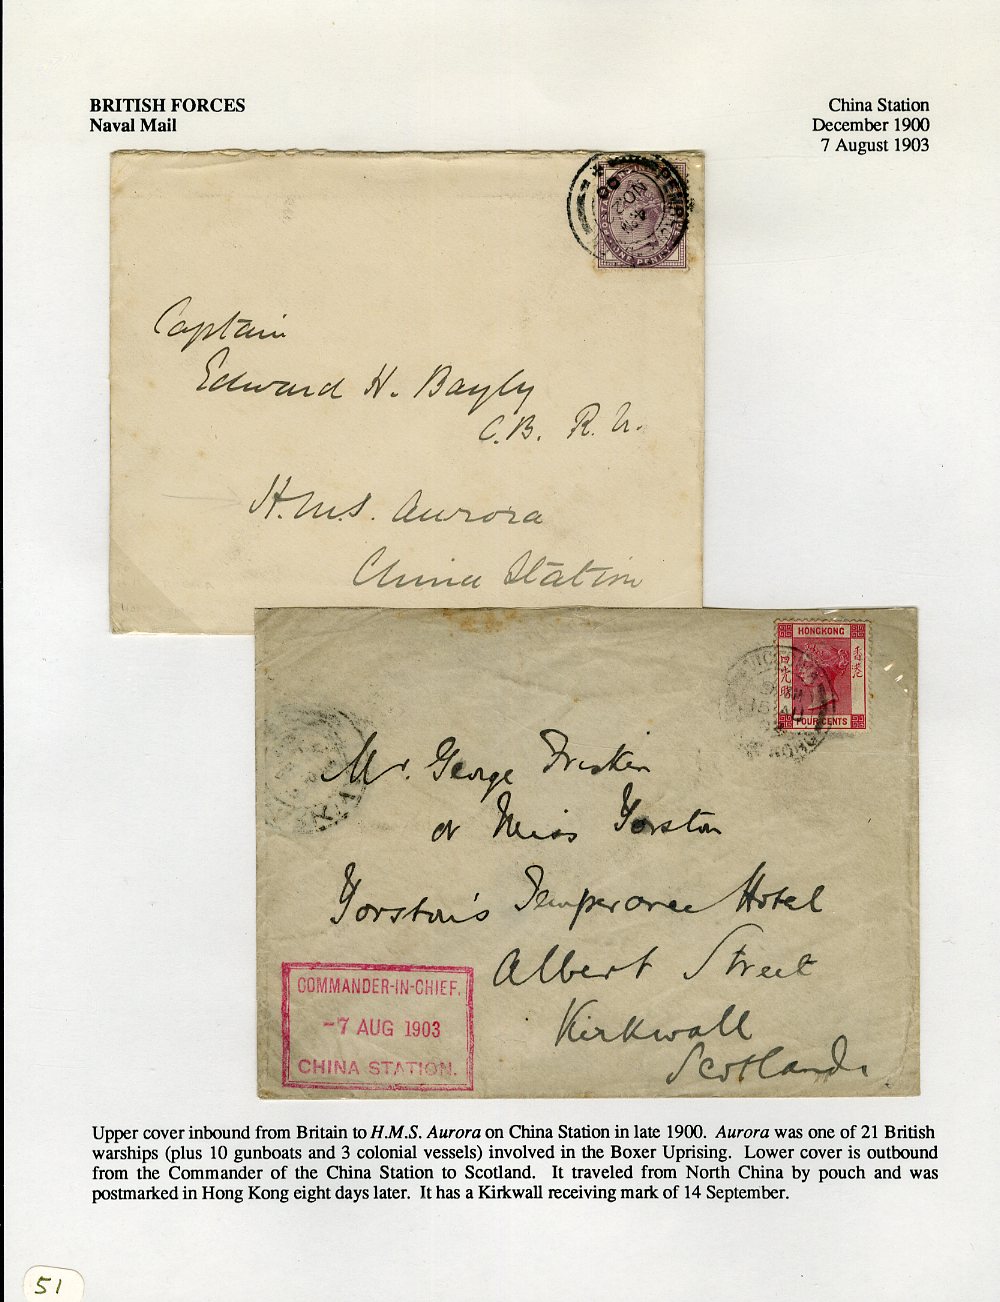 BRITISH FORCES
Naval Mail
China Station
December 1900
7 August 1903
PEMBR
4 PM
NO 2
00
ONE PENNY
Captain
Edward H. Bayly
C.B. R.N.
H.M.S. Aurora
China Station
HONGKONG
香港
四先時
FOUR CENTS
15 AU
03
KONG
Mr. George Friskin
or Miss Yorston
Yorston's Temperance Hotel
Albert Street
Kirkwall
Scotland.
COMMANDER-IN-CHIEF,
-7 AUG 1903
CHINA STATION.
Upper cover inbound from Britain to H.M.S. Aurora on China Station in late 1900. Aurora was one of 21 British
warships (plus 10 gunboats and 3 colonial vessels) involved in the Boxer Uprising. Lower cover is outbound
from the Commander of the China Station to Scotland. It traveled from North China by pouch and was
postmarked in Hong Kong eight days later. It has a Kirkwall receiving mark of 14 September.
51